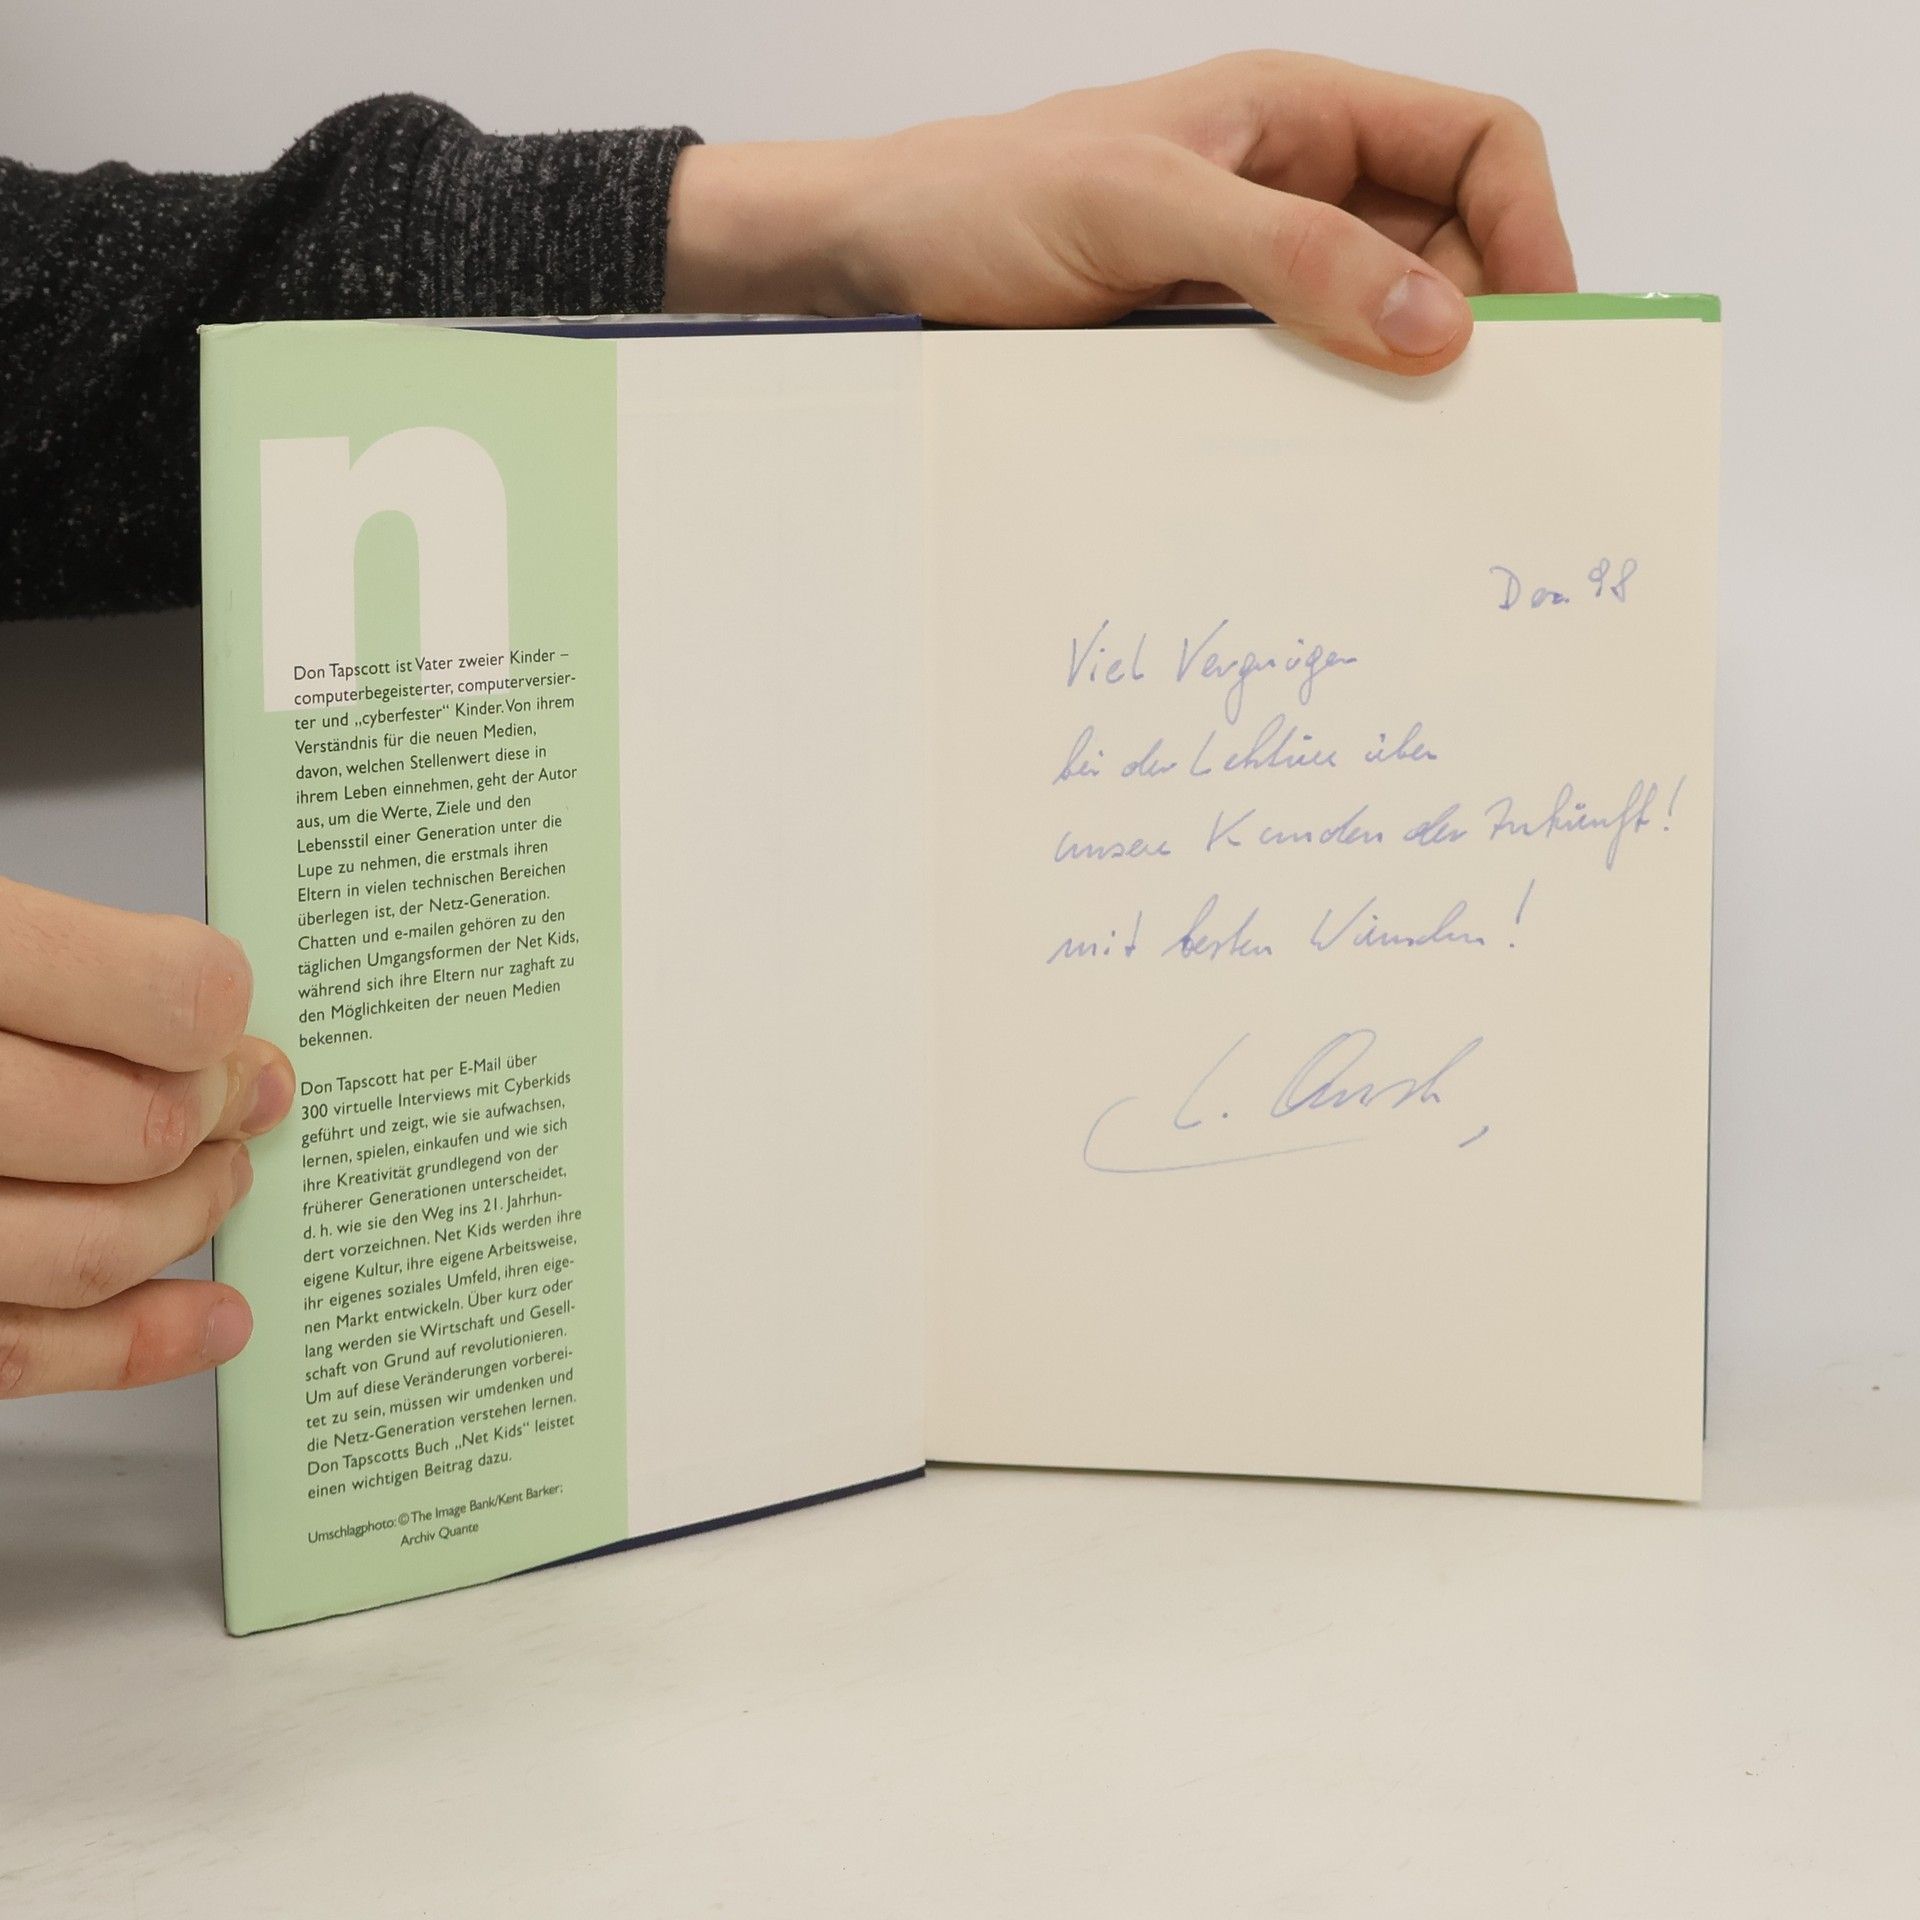 n
Don Tapscott ist Vater zweier Kinder –
computerbegeisterter, computerversier-
ter und „cyberfester“ Kinder. Von ihrem
Verständnis für die neuen Medien,
davon, welchen Stellenwert diese in
ihrem Leben einnehmen, geht der Autor
aus, um die Werte, Ziele und den
Lebensstil einer Generation unter die
Lupe zu nehmen, die erstmals ihren
Eltern in vielen technischen Bereichen
überlegen ist, der Netz-Generation.
Chatten und e-mailen gehören zu den
täglichen Umgangsformen der Net Kids,
während sich ihre Eltern nur zaghaft zu
den Möglichkeiten der neuen Medien
bekennen.
Don Tapscott hat per E-Mail über
300 virtuelle Interviews mit Cyberkids
geführt und zeigt, wie sie aufwachsen,
lernen, spielen, einkaufen und wie sich
ihre Kreativität grundlegend von der
früherer Generationen unterscheidet,
d. h. wie sie den Weg ins 21. Jahrhun-
dert vorzeichnen. Net Kids werden ihre
eigene Kultur, ihre eigene Arbeitsweise,
ihr eigenes soziales Umfeld, ihren eige-
nen Markt entwickeln. Über kurz oder
lang werden sie Wirtschaft und Gesell-
schaft von Grund auf revolutionieren.
Um auf diese Veränderungen vorberei-
tet zu sein, müssen wir umdenken und
die Netz-Generation verstehen lernen.
Don Tapscotts Buch „Net Kids“ leistet
einen wichtigen Beitrag dazu.
Umschlagphoto: © The Image Bank/Kent Barker;
Archiv Quante
Dez. 98
Viel Vergnügen
bei der Lektüre über
unsere Kunden der Zukunft!
mit besten Wünschen!